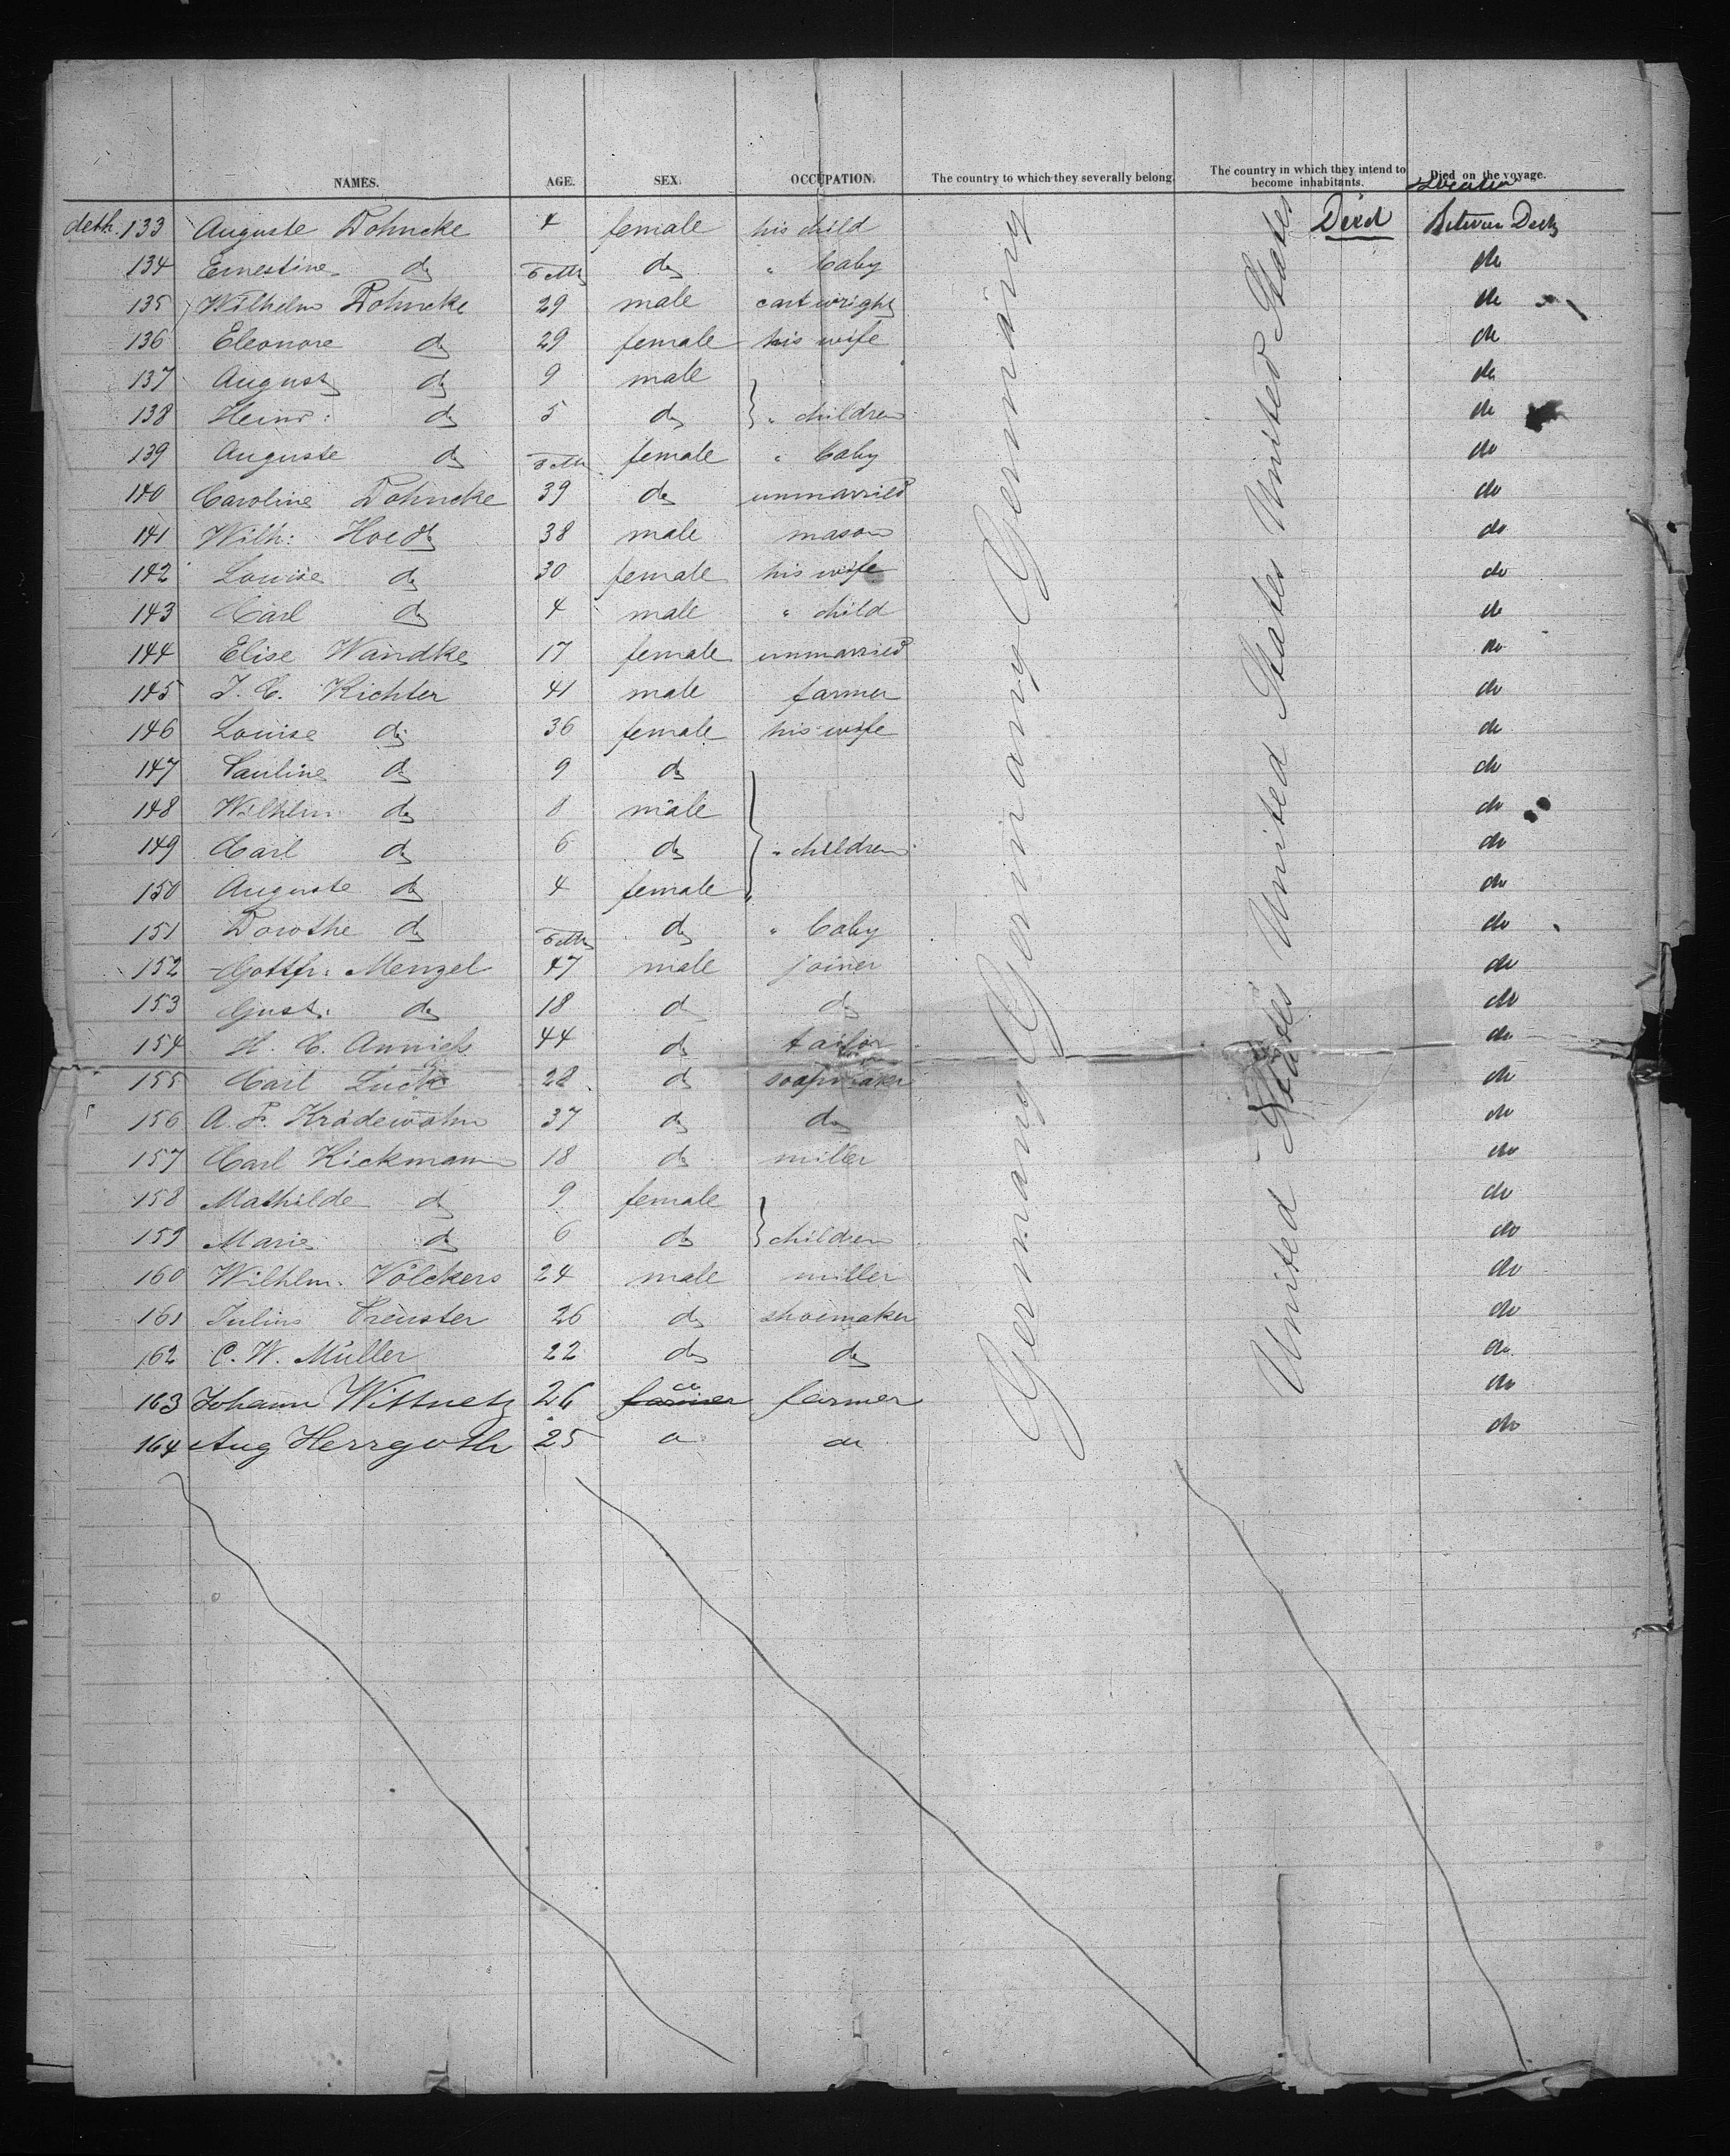 NAMES. AGE. SEX. OCCUPATION. The country to which they severally belong. The country in which they intend to become inhabitants. Died on the voyage.
Location
deth. 133 Auguste Dohncke 4 female his child Died Between Decks
134 Ernestine do 6 Mth do " baby do
135 Wilhelm Dohncke 29 male cartwright do
136 Eleonore do 29 female his wife do
137 August do 9 male do
138 Heinr: do 5 do } " children do
139 Auguste do 8 Mth female " baby do
140 Caroline Dohncke 39 do unmarried do
141 Wilh: Hoedt 38 male mason do
142 Louise do 30 female his wife do
143 Carl do 4 male " child do
144 Elise Wandke 17 female unmarried do
145 J. C. Richter 41 male farmer do
146 Louise do 36 female his wife do
147 Pauline do 9 do do
148 Wilhlm do 8 male do
149 Carl do 6 do } " children do
150 Auguste do 4 female do
151 Dorothe do 6 Mth do " baby do
152 Gottfr: Menzel 47 male joiner do
153 Gust: do 18 do do do
154 H. C. Annich 44 do tailor do
155 Carl Luck 28 do soapmaker do
156 A. F. Kradewahn 37 do do do
157 Carl Rickmann 18 do miller do
158 Mathilde do 9 female do
159 Marie do 6 do } children do
160 Wilhlm. Völckers 24 male miller do
161 Julius Preuster 26 do shoemaker do
162 C. W. Müller 22 do do do
163 Johann Wittnetz 26 farmer do farmer do
164 Aug Herrgoth 25 do do do
Germany Germany Germany Germany
United States United States United States